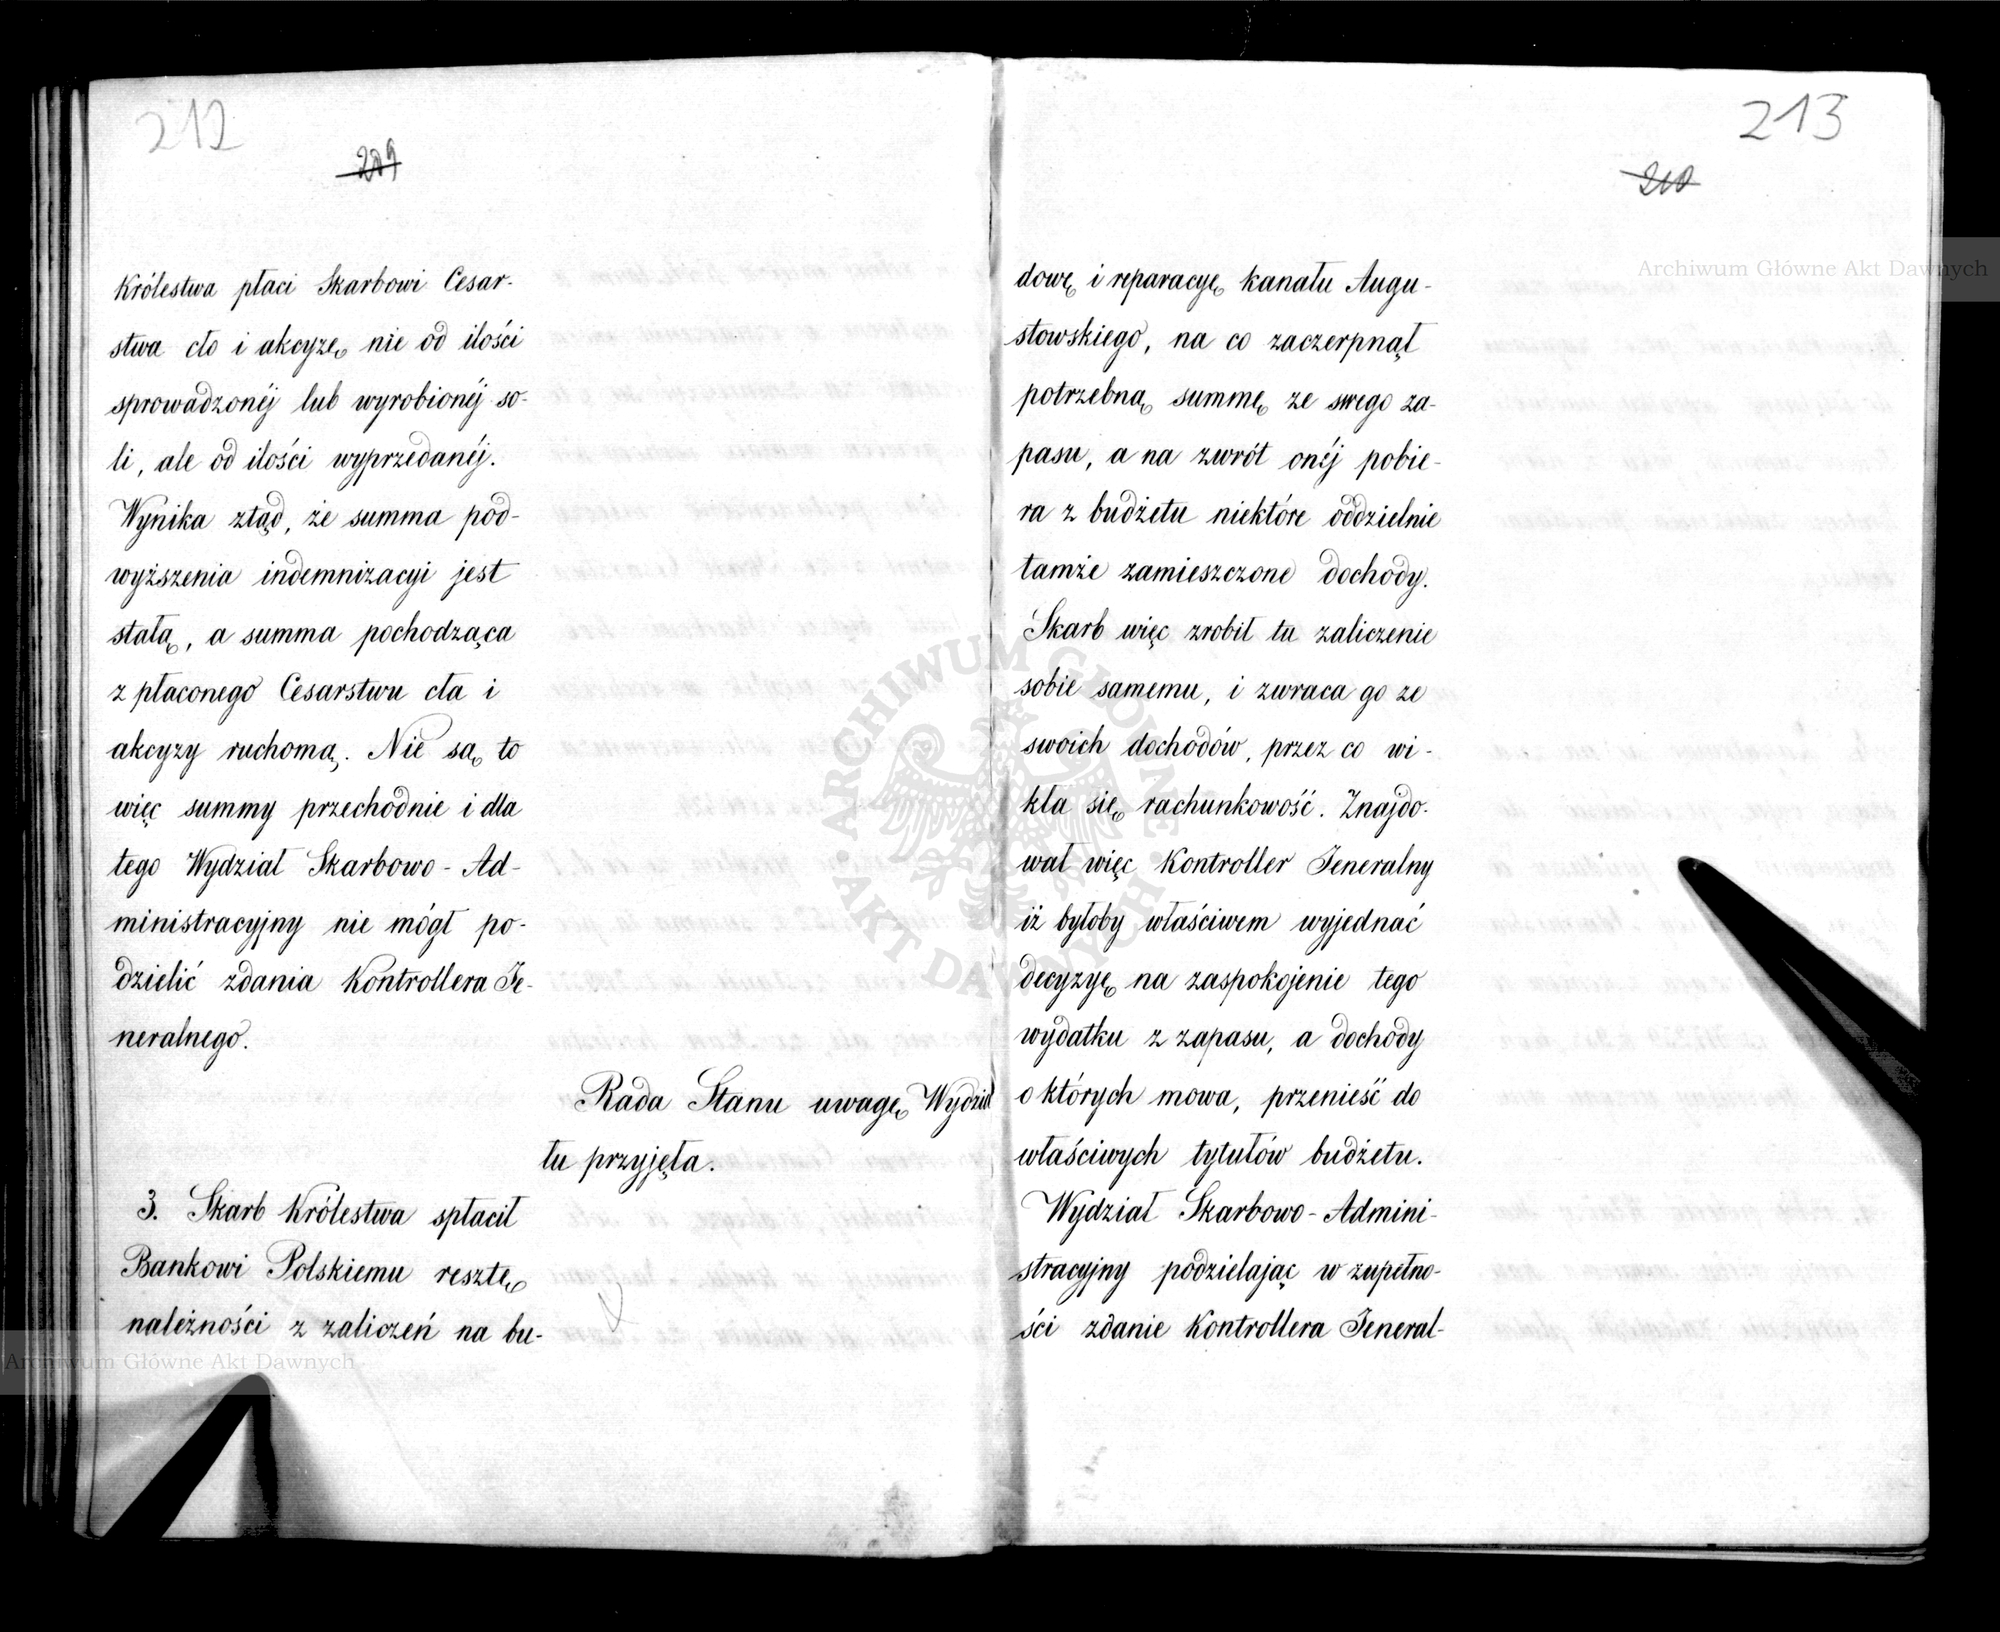 212
209
Królestwa płaci Skarbowi Cesar-
stwa cło i akcyzę nie od ilości
sprowadzonéj lub wyrobionéj so-
li, ale od ilości wyprzedanéj.
Wynika ztąd, że summa pod-
wyższenia indemnizacyi jest
stałą, a summa pochodząca
z płaconego Cesarstwu cła i
akcyzy ruchomą. Nie są to
więc summy przechodnie i dla
tego Wydział Skarbowo-Ad-
ministracyjny nie mógł po-
dzielić zdania Kontrollera Je-
neralnego.
Rada Stanu uwagę Wydzia
łu przyjęła.
3. Skarb Królestwa spłacił
Bankowi Polskiemu resztę
należności z zaliczeń na bu-
213
210
dowę i reparacyę kanału Augu-
stowskiego, na co zaczerpnął
potrzebną summę ze swego za-
pasu, a na zwrót onéj pobie-
ra z budżetu niektóre oddzielnie
tamże zamieszczone dochody.
Skarb więc zrobił tu zaliczenie
sobie samemu, i zwraca go ze
swoich dochodów, przez co wi-
kła się rachunkowość. Znajdo-
wał więc Kontroller Jeneralny
iż byłoby właściwem wyjednać
decyzyę na zaspokojenie tego
wydatku z zapasu, a dochody
o których mowa, przenieść do
właściwych tytułów budżetu.
Wydział Skarbowo-Admini-
stracyjny podzielając w zupełno-
ści zdanie Kontrollera Jeneral-
Archiwum Główne Akt Dawnych
Archiwum Główne Akt Dawnych
ARCHIWUM GŁÓWNE
AKT DAWNYCH